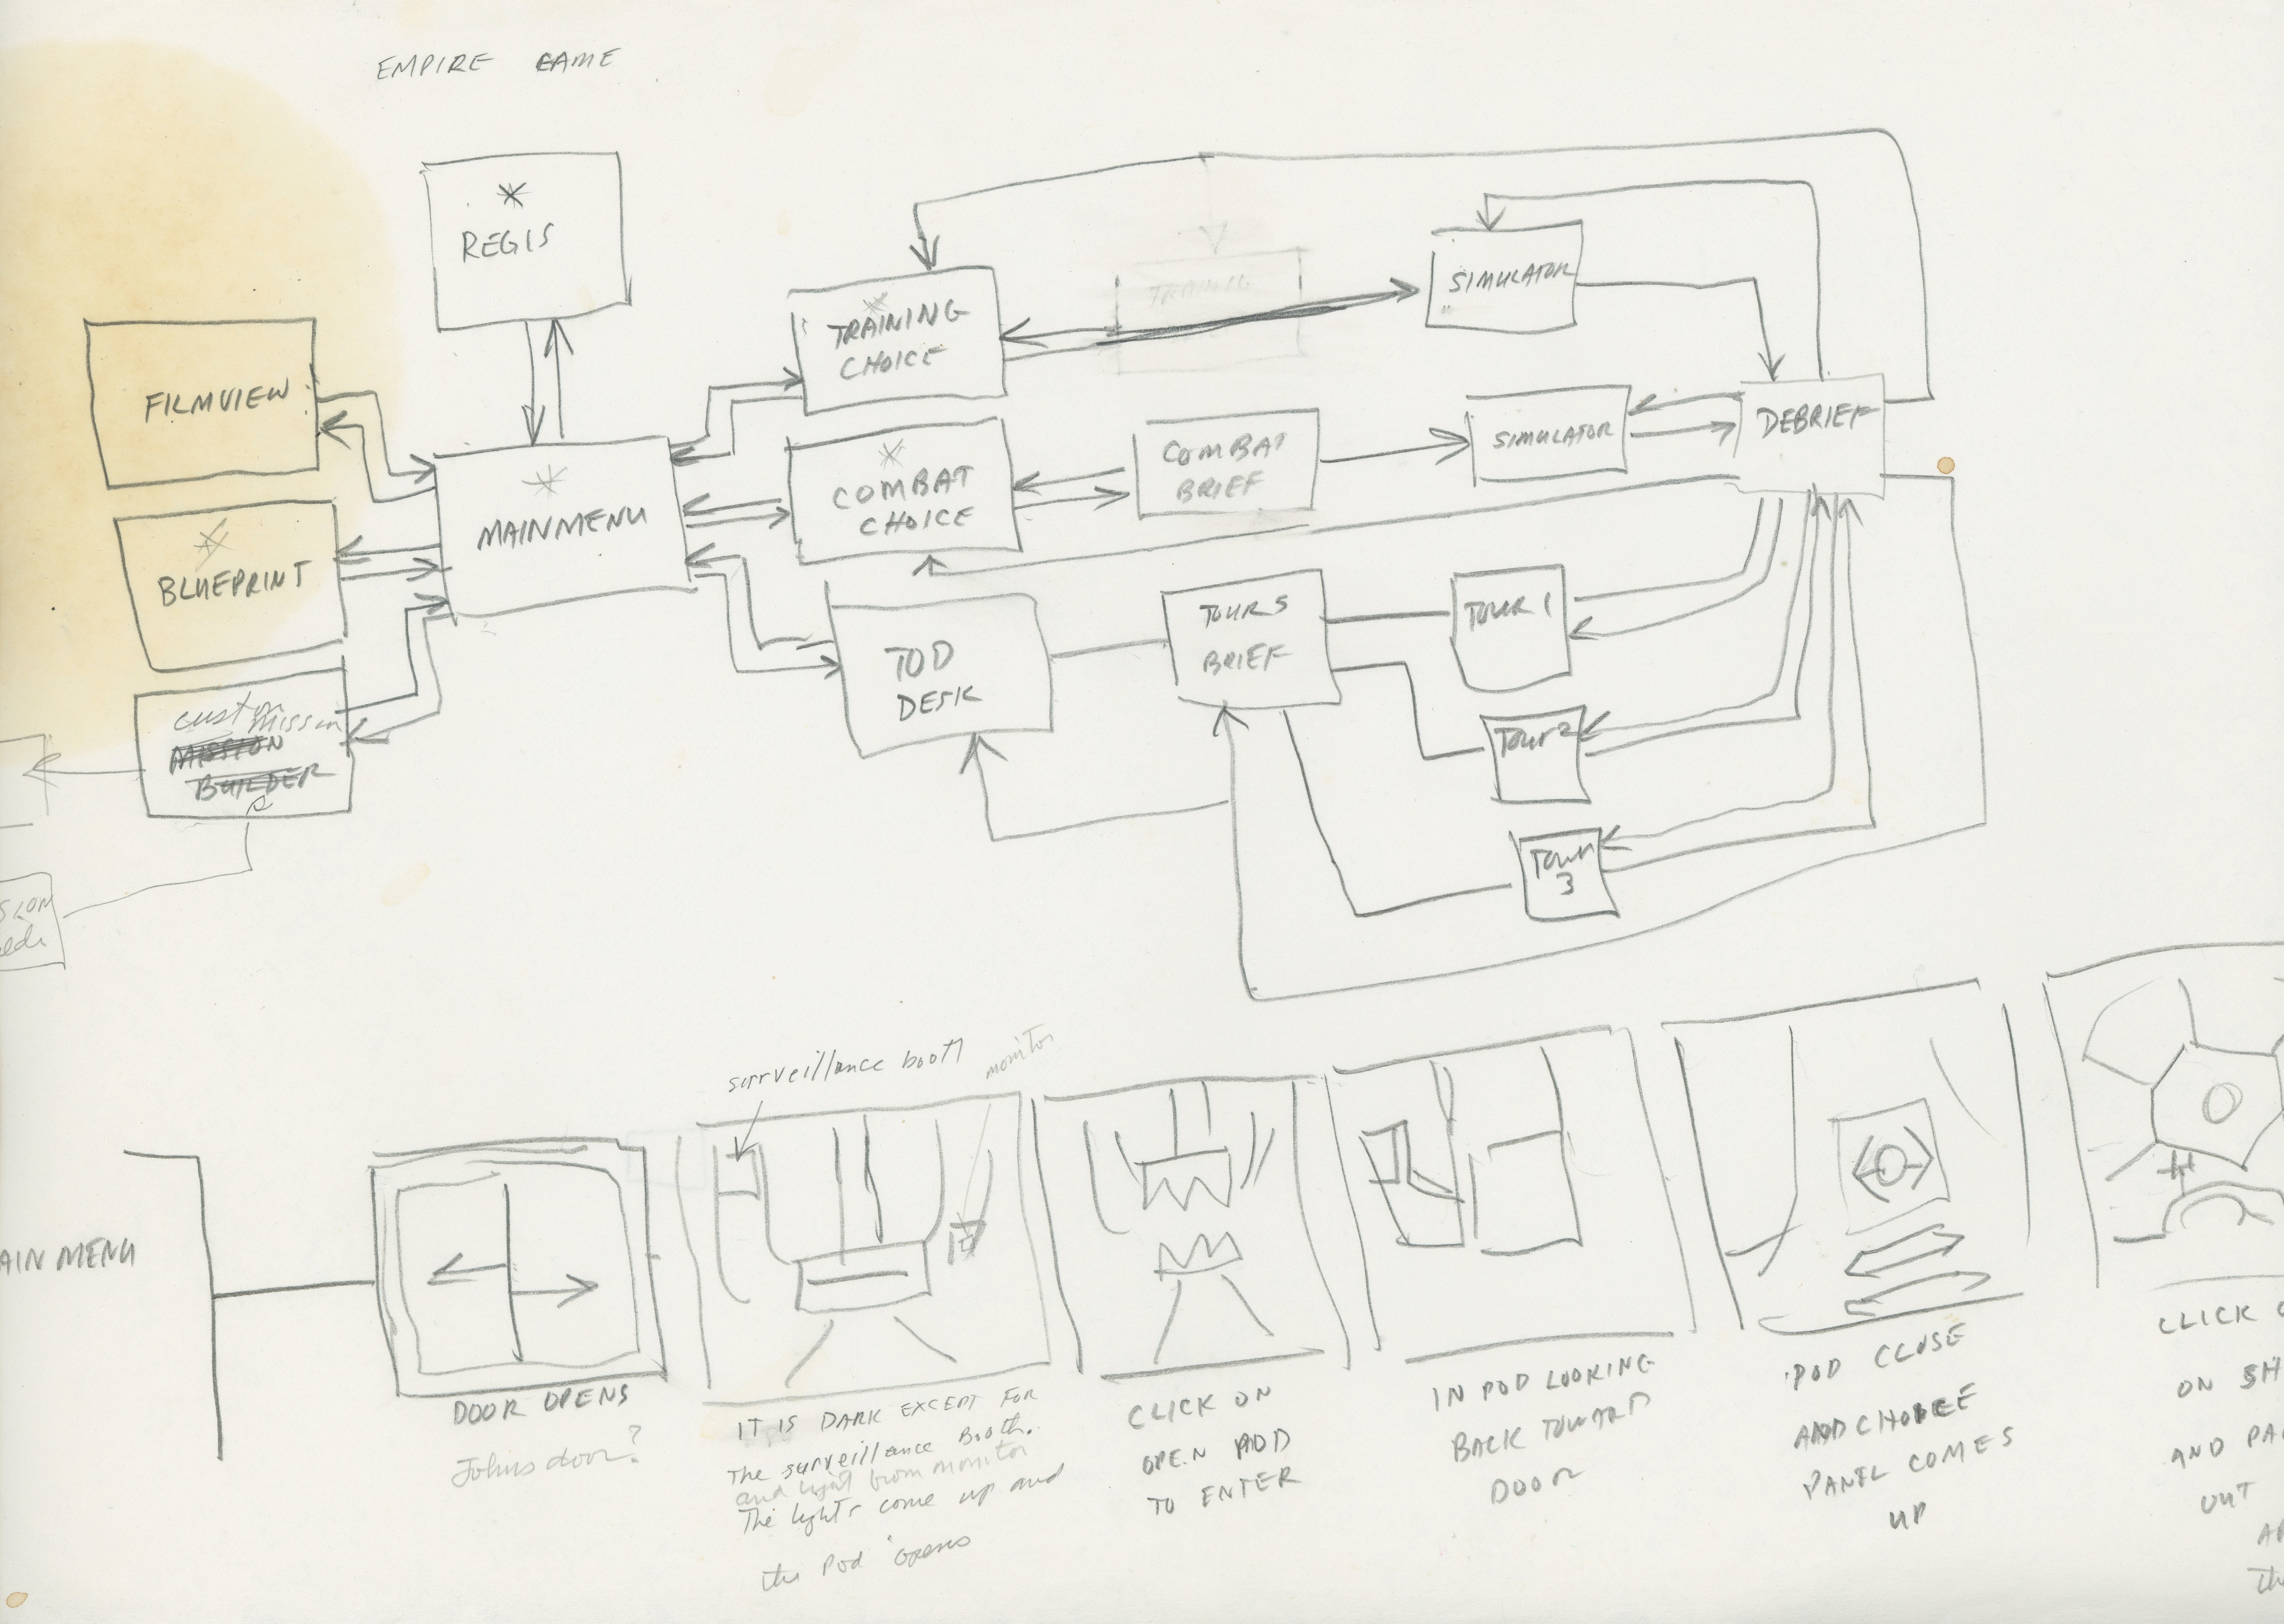 EMPIRE GAME
REGIS
FILMVIEW
BLUEPRINT
custom
mission
MISSION
BUILDER
MAINMENU
TRAINING
CHOICE
TRAINING
SIMULATOR
COMBAT
CHOICE
COMBAT
BRIEF
SIMULATOR
DEBRIEF
TOD
DESK
TOURS
BRIEF
TOUR 1
TOUR 2
TOUR
3
SION
surveillance booth
monitor
AIN MENU
DOOR OPENS
Johns door?
IT IS DARK EXCEPT FOR
The surveillance Booth.
and light from monitor
The lights come up and
the pod opens
CLICK ON
OPEN POD
TO ENTER
IN POD LOOKING
BACK TOWARD
DOOR
POD CLOSE
AND CHOICE
PANEL COMES
UP
CLICK
ON SH
AND PA
OUT